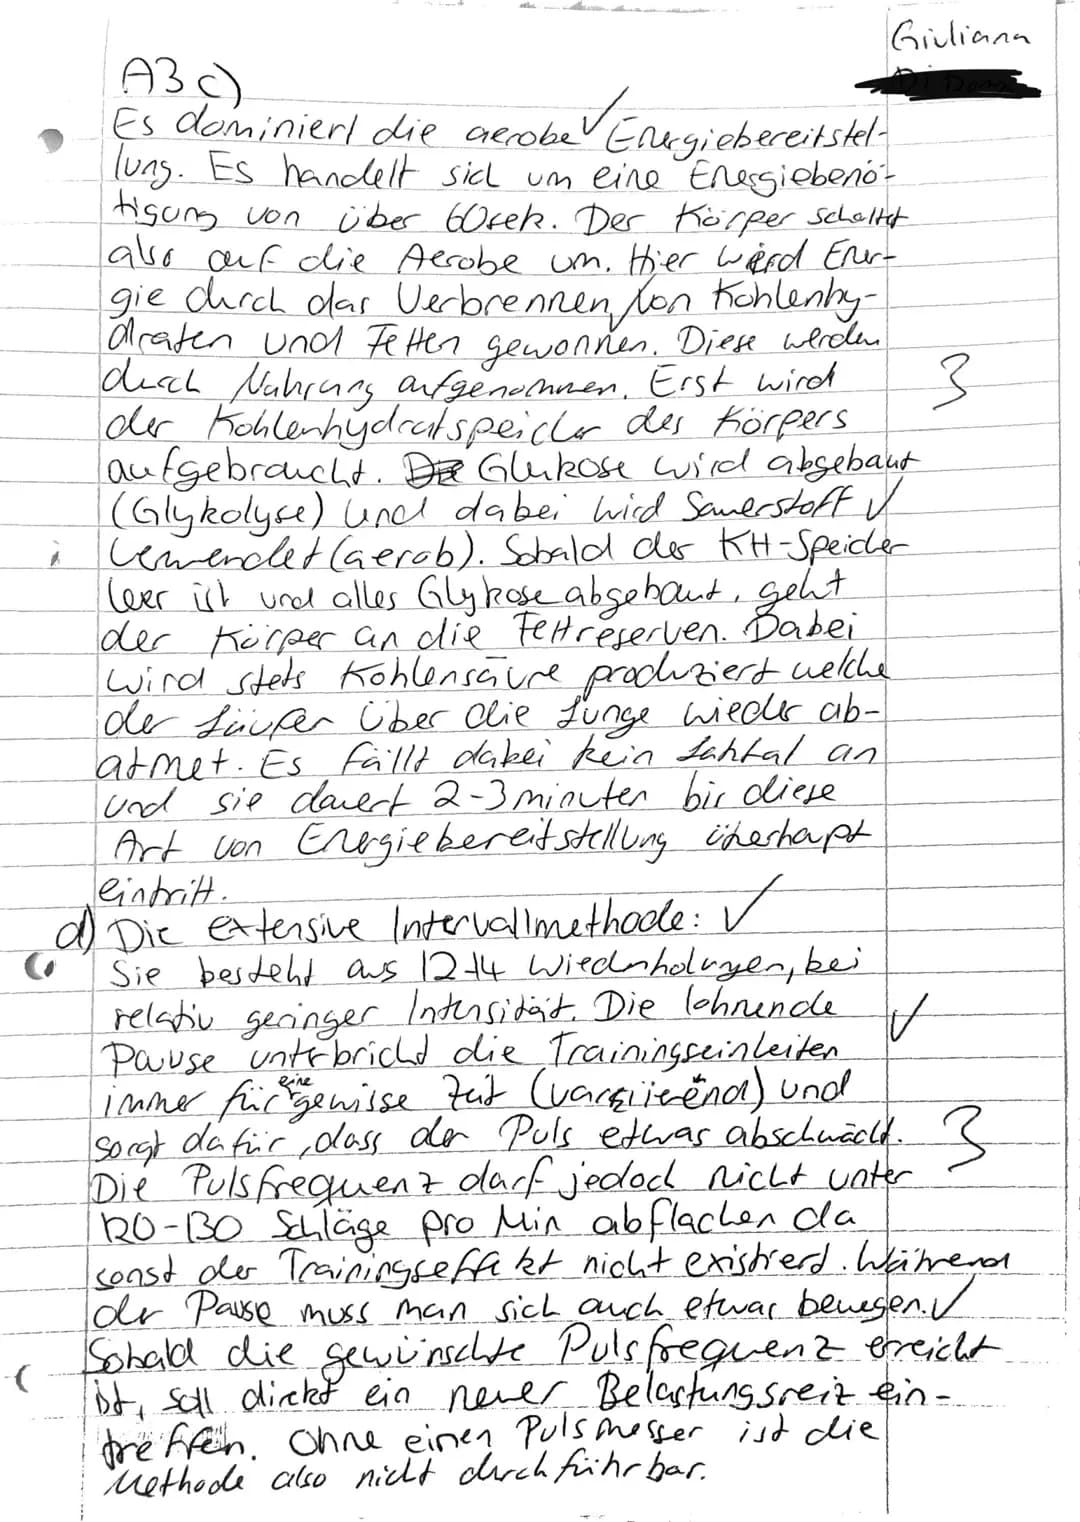 Giuliana
A3 c)
Es dominiert die aerobe Energiebereitstel-
lung. Es handelt sich um eine Energiebenö-
tigung von über 60sek. Der Körper schaltet
also auf die Aerobe um. Hier wird Ener-
gie durch das Verbrennen von Kohlenhy-
draten und Fetten gewonnen. Diese werden
durch Nahrung aufgenommen. Erst wird
3
der Kohlenhydratspeicher des Körpers
aufgebraucht. Glukose wird abgebaut
(Glykolyse) und dabei wird Sauerstoff
verwendet (aerob). Sobald der KH-Speicher
leer ist und alles Glykose abgebaut, geht
der Körper an die Fettreserven. Dabei
wird stets Kohlensäure produziert welche
der Läufer über die Lunge wieder ab-
atmet. Es fällt dabei kein Laktat an
und sie dauert 2-3 minuten bis diese
Art von Energiebereitstellung überhaupt
eintritt.
d) Die extensive Intervallmethode:
Sie besteht aus 12-14 Wiederholungen, bei
relativ geringer Intensität. Die lohnende
Pause unterbricht die Trainingseinheiten
immer für eine gewisse Zeit (variierend) und
sorgt dafür, dass der Puls etwas abschwächt.
3
Die Pulsfrequenz darf jedoch nicht unter
120-130 Schläge pro Min abflachen da
sonst der Trainingseffekt nicht existierd. Während
der Pause muss man sich auch etwas bewegen.
Sobald die gewünschte Pulsfrequenz erreicht
ist, soll direkt ein neuer Belastungsreiz ein-
treffen. Ohne einen Pulsmesser ist die
Methode also nicht durchführbar.